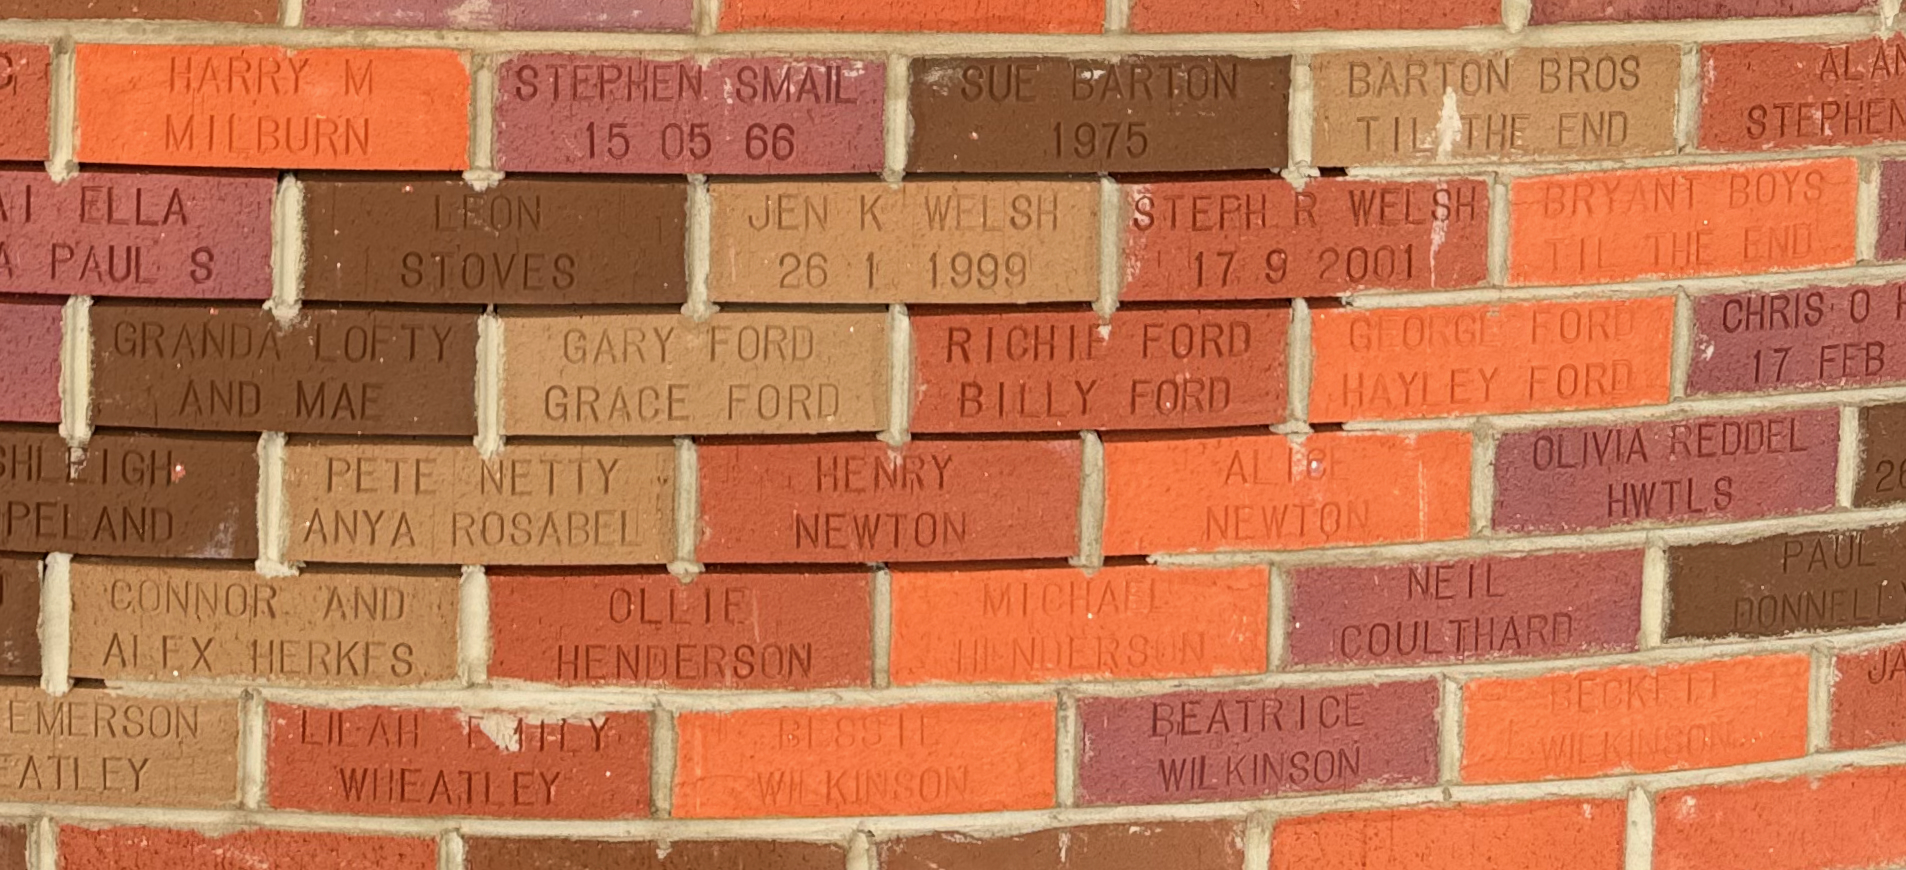 HARRY M
MILBURN
STEPHEN SMAIL
15 05 66
SUE BARTON
1975
BARTON BROS
TIL THE END
ALAN
STEPHEN
AI ELLA
A PAUL S
LEON
STOVES
JEN K WELSH
26 1 1999
STEPH R WELSH
17 9 2001
BRYANT BOYS
TIL THE END
GRANDA LOFTY
AND MAE
GARY FORD
GRACE FORD
RICHIE FORD
BILLY FORD
GEORGE FORD
HAYLEY FORD
CHRIS O H
17 FEB
SHLEIGH
PELAND
PETE NETTY
ANYA ROSABEL
HENRY
NEWTON
ALICE
NEWTON
OLIVIA REDDEL
HWTLS
26
CONNOR AND
ALEX HERKES
OLLIE
HENDERSON
MICHAEL
HENDERSON
NEIL
COULTHARD
PAUL
DONNELLY
EMERSON
EATLEY
LILAH EMILY
WHEATLEY
BESSIE
WILKINSON
BEATRICE
WILKINSON
BECKETT
WILKINSON
JA